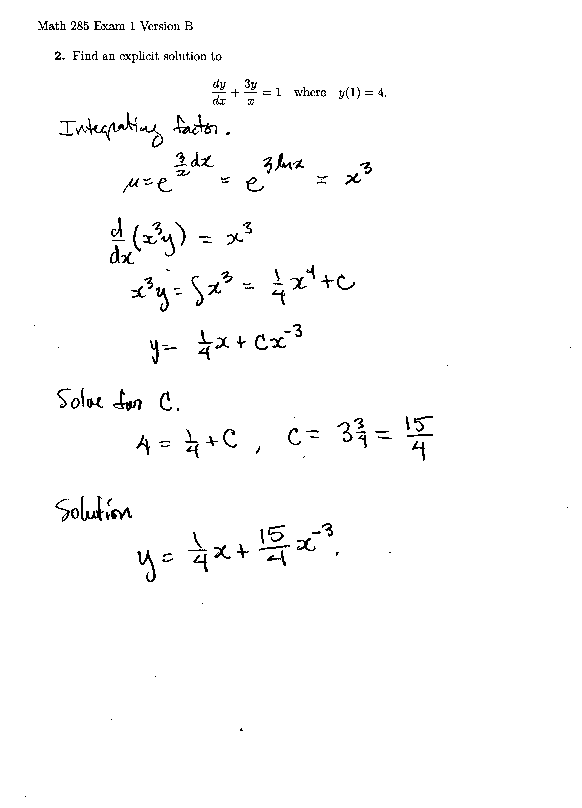 Math 285 Exam 1 Version B
2. Find an explicit solution to
dy/dx + 3y/x = 1 where y(1) = 4.
Integrating factor.
μ = e^{3/x dx} = e^{3 ln x} = x^3
d/dx (x^3 y) = x^3
x^3 y = ∫x^3 = 1/4 x^4 + C
y = 1/4 x + Cx^{-3}
Solve for C.
4 = 1/4 + C, C = 3 3/4 = 15/4
Solution
y = 1/4 x + 15/4 x^{-3}.